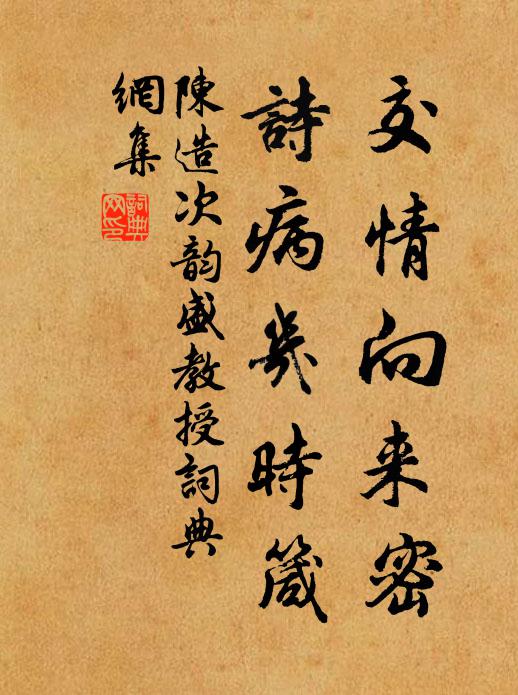 交情向来密
詩病幾時箴
陳造次韵盛教授詞典
網集
詞典网印